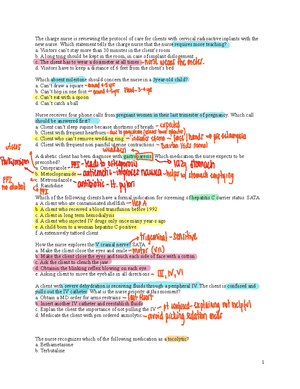 The charge nurse is reviewing the protocol of care for clients with cervical radioactive implants with the
new nurse. Which statement tells the charge nurse that the nurse requires more teaching?
a. Visitors can't stay more than 30 minutes in the client's room
b. A long tong should be kept in the room, in case of implant dislodgement
c. The client has to wear a dosimeter at all times - nurse wears the meter.
d. Visitors have to keep a distance of 6 feet from the client's bed
Which absent milestone should concern the nurse in a 3-year-old child?
a. Can't draw a square
b. Can't hop in one foot
c. Can't eat with a spoon
d. Can't catch a ball
Nurse receives four calls from pregnant women in their last trimester of pregnancy. Which call
should be answered first?
a. Client can't sleep supine because shortness of breath → expected
b. Client with frequent heartburn
c. Client who can't remove wedding ring
d. Client with frequent non painful uterine contractions - Braxton Hicks
A diabetic client has been diagnosed with gastroparesis. Which medication the nurse expects to be
prescribed?
a. Omeprazole
b. Metoclopramide
c. Metronidazole - antibiotic - H. pylori
d. Ranitidine
Which of the following clients have a formal indication for screening of hepatitis C carrier status. SATA
a. A client who ate contaminated shellfish → Hep A
b. A client who received a blood transfusion before 1992
c. A client in long term hemodialysis
d. A client who injected IV drugs only once many years ago
e. A child born to a woman hepatitis C positive
f. A extensively tattooed client
How the nurse explores the V cranial nerve? SATA
a. Make the client close the eyes and smile
b. Make the client close the eyes and touch each side of face with a cotton
c. Ask the client to clench the jaw
d. Obtaining the blinking reflex blowing on each eye
e. Asking client to move the eyeballs in all directions - III, IV, VI
A client with severe dehydration is receiving fluids through a peripheral IV. The client is confused and
pulls out the IV catheter. What is the nurse priority at this moment?
a. Obtain a MD order for arms restraints → last resort
b. Insert another IV catheter and reestablish fluids
c. Explain the client the importance of not pulling the IV → pt confused - explaining not helpful
d. Medicate the client with prn ordered anxiolytic
The nurse recognizes which of the following medication as a tocolytic?
a. Bethametasone
b. Terbutaline
1